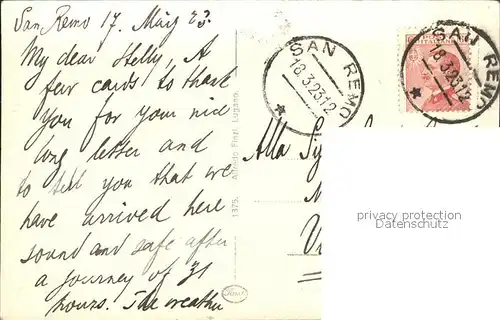 San Remo 17. März 23.
My dear Shelly, A
few cards to thank
you for your nice
long letter and
to tell you that we
have arrived here
sound and safe after
a journey of 31
hours. The weather
SAN REMO
18.3.23.12
SAN REMO
18.3.23.12
Alla
1375. Alfredo Finzi, Lugano.
privacy protection
Datenschutz